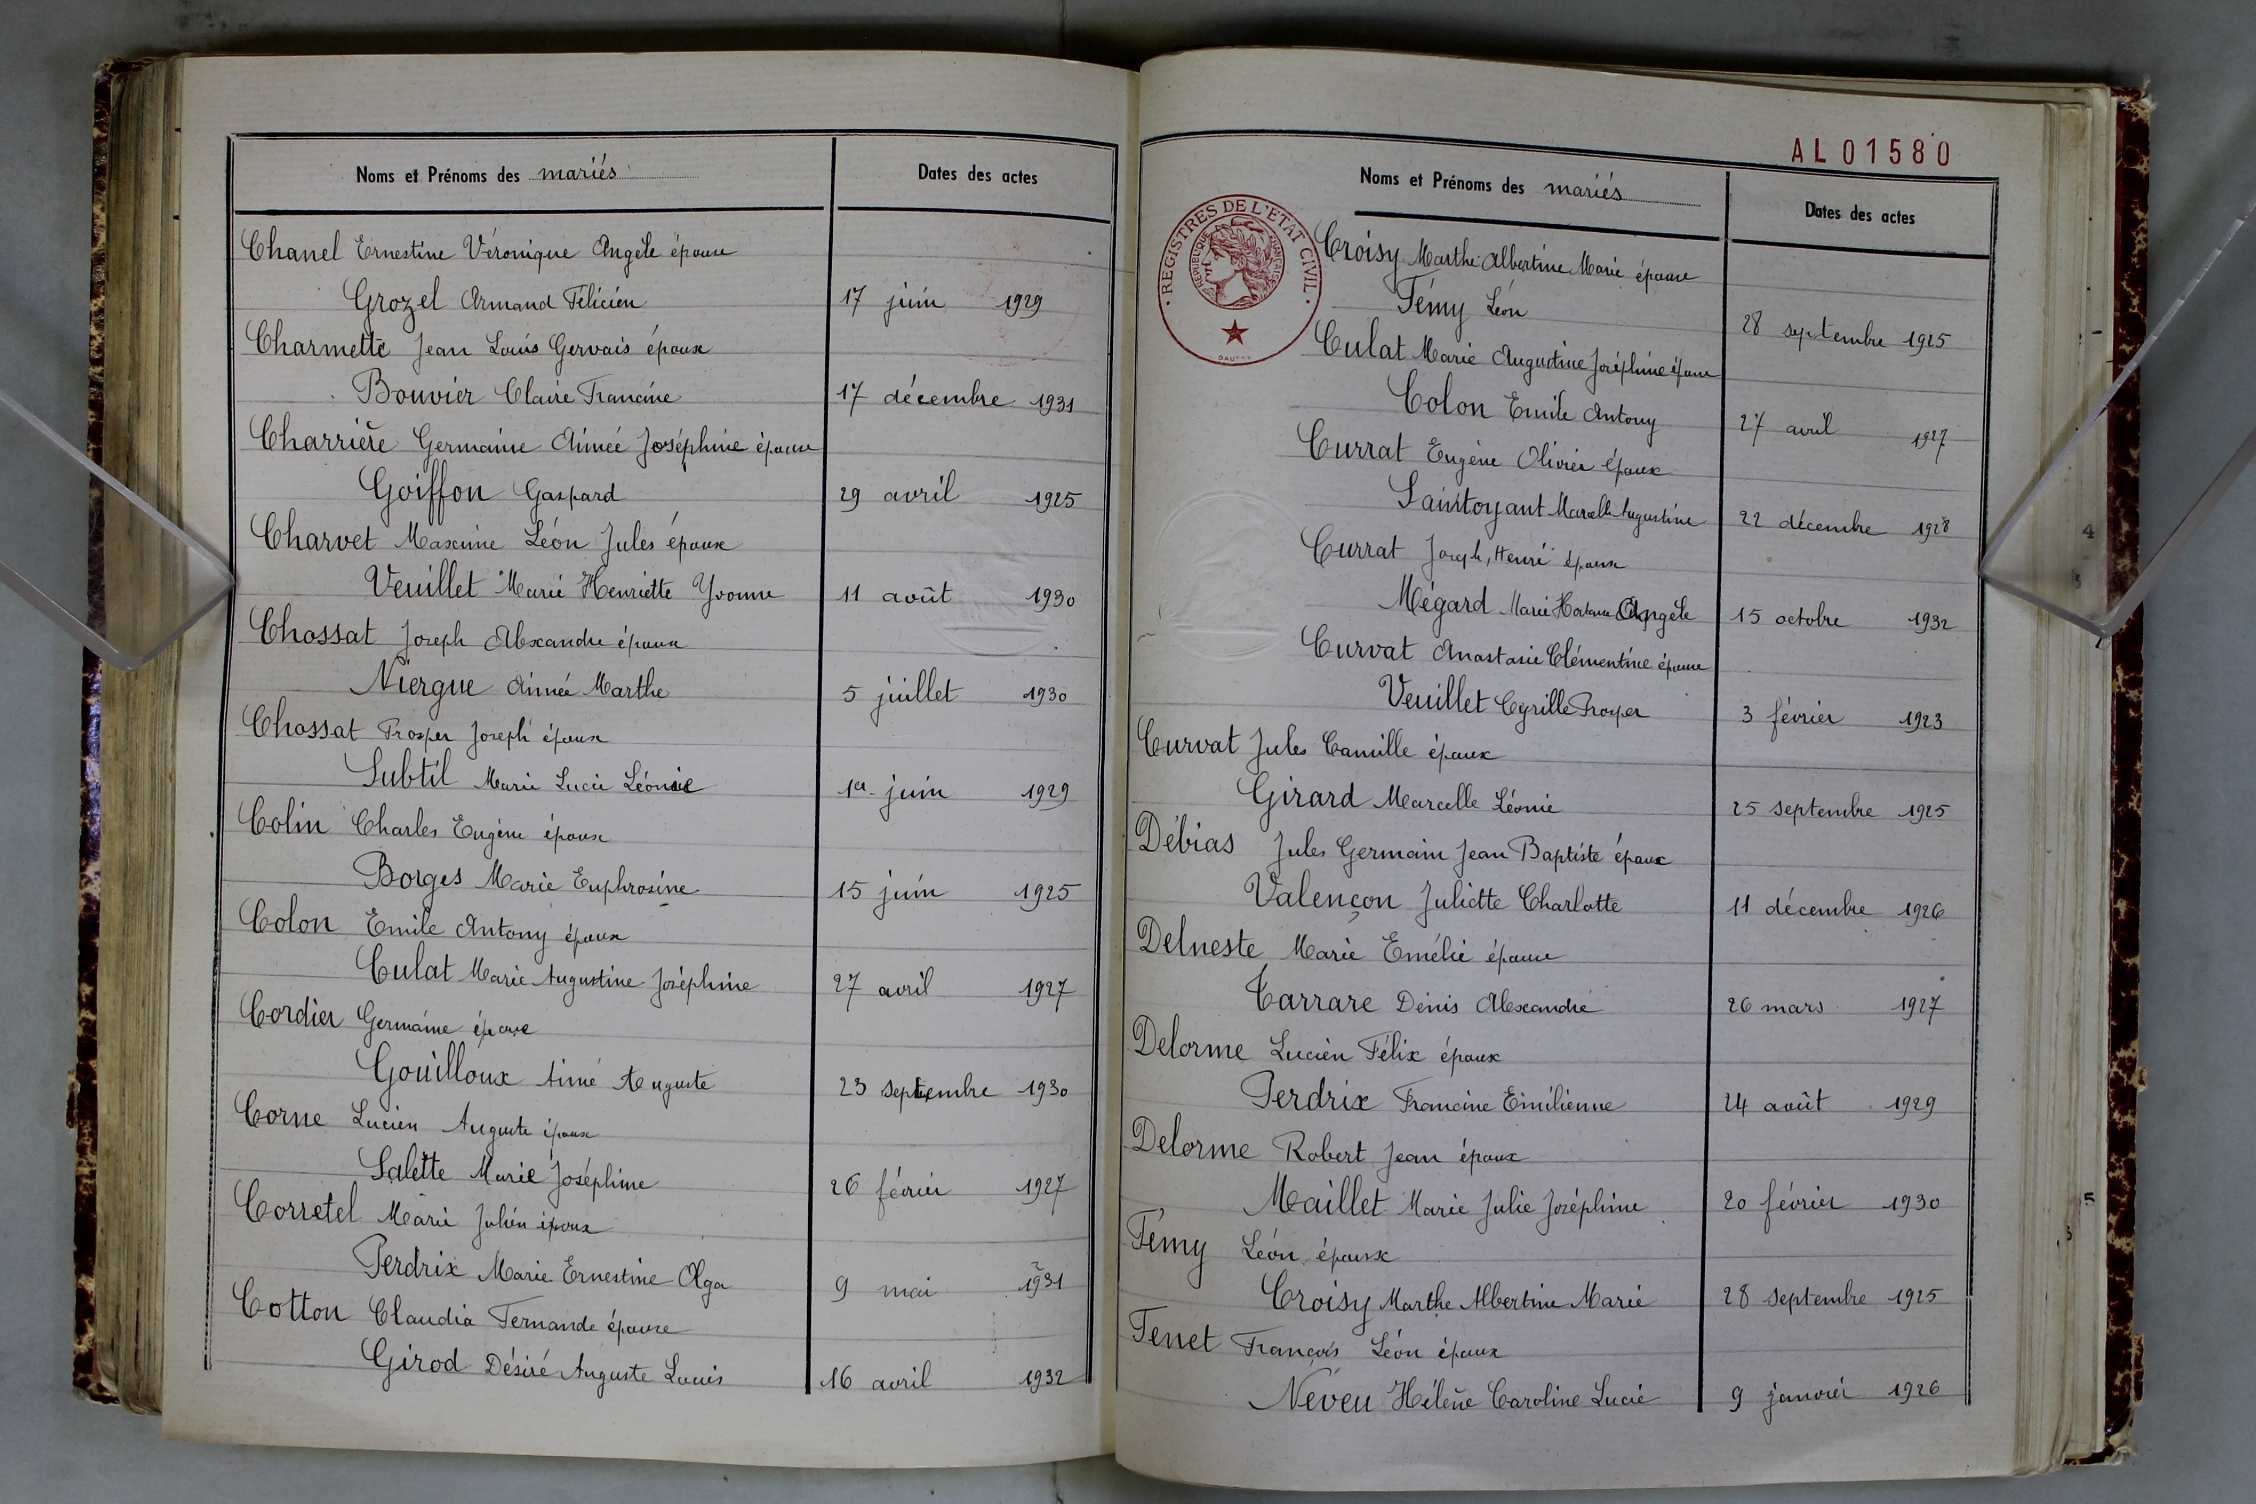 Noms et Prénoms des mariés
Dates des actes
Chanel Ernestine Véronique Angèle épouse
Grozel Armand Félicien 17 juin 1929
Charmette Jean Louis Gervais époux
Bouvier Claire Francine 17 décembre 1931
Charrière Germaine Aimée Joséphine épouse
Goiffon Gaspard 29 avril 1925
Charvet Maxime Léon Jules époux
Veuillet Marie Henriette Yvonne 11 août 1930
Chossat Joseph Alexandre époux
Niergue Aimée Marthe 5 juillet 1930
Chossat Prosper Joseph époux
Subtil Marie Lucie Léonie 1er juin 1929
Colin Charles Eugène époux
Borges Marie Euphrosine 15 juin 1925
Colon Emile Antony époux
Culat Marie Augustine Joséphine 27 avril 1927
Cordier Germaine épouse
Gouilloux Aimé Auguste 23 septembre 1930
Corne Lucien Auguste époux
Salette Marie Joséphine 26 février 1927
Corretel Marie Julien époux
Perdrix Marie Ernestine Olga 9 mai 1931
Cotton Claudia Fernande épouse
Girod Désiré Auguste Louis 16 avril 1932
AL01580
Noms et Prénoms des mariés
Dates des actes
REGISTRES DE L'ETAT CIVIL
REPUBLIQUE FRANCAISE
Croisy Marthe Albertine Marie épouse
Fémy Léon 28 septembre 1925
Culat Marie Augustine Joséphine épouse
Colon Emile Antony 27 avril 1927
Currat Eugène Olivier époux
Saintoyant Marcelle Augustine 22 décembre 1928
Currat Joseph, Henri époux
Mégard Marie Angèle 15 octobre 1932
Curvat Anastasie Clémentine épouse
Veuillet Cyrille Prosper 3 février 1923
Curvat Jules Camille époux
Girard Marcelle Léonie 25 septembre 1925
Débias Jules Germain Jean Baptiste époux
Valençon Juliette Charlotte 11 décembre 1926
Delneste Marie Emélie épouse
Carrare Denis Alexandre 26 mars 1927
Delorme Lucien Félix époux
Perdrix Francine Emilienne 24 août 1929
Delorme Robert Jean époux
Maillet Marie Julie Joséphine 20 février 1930
Fémy Léon époux
Croisy Marthe Albertine Marie 28 septembre 1925
Fenet François Léon époux
Neveu Hélène Caroline Lucie 9 janvier 1926
4
5